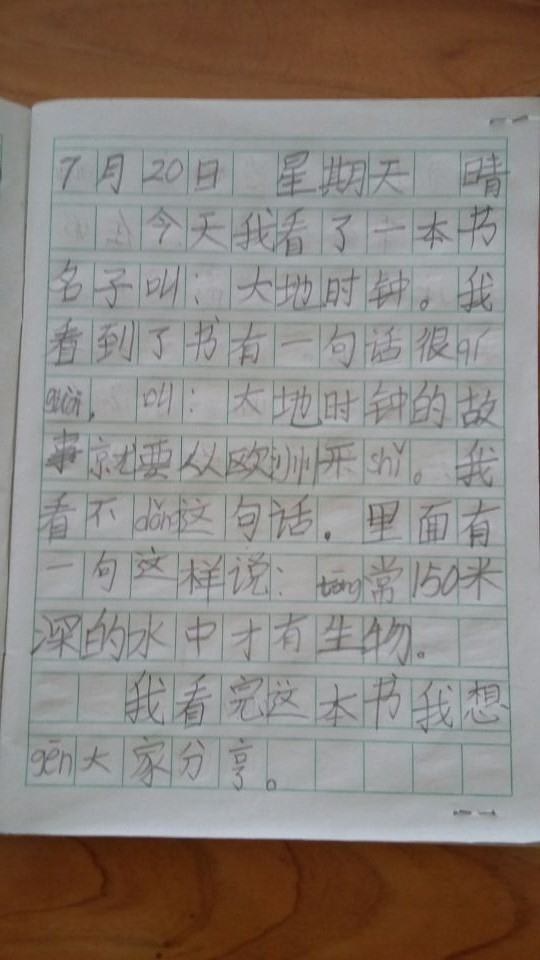 7月20日 星期天 晴
今天我看了一本书
名子叫：大地时钟。我
看到了书有一句话很qí
guài，叫：大地时钟的故
事就要从欧洲开shǐ。我
看不dǒng这句话．里面有
一句这样说：tōng常150米
深的水中才有生物。
我看完这本书我想
gēn大家分享。